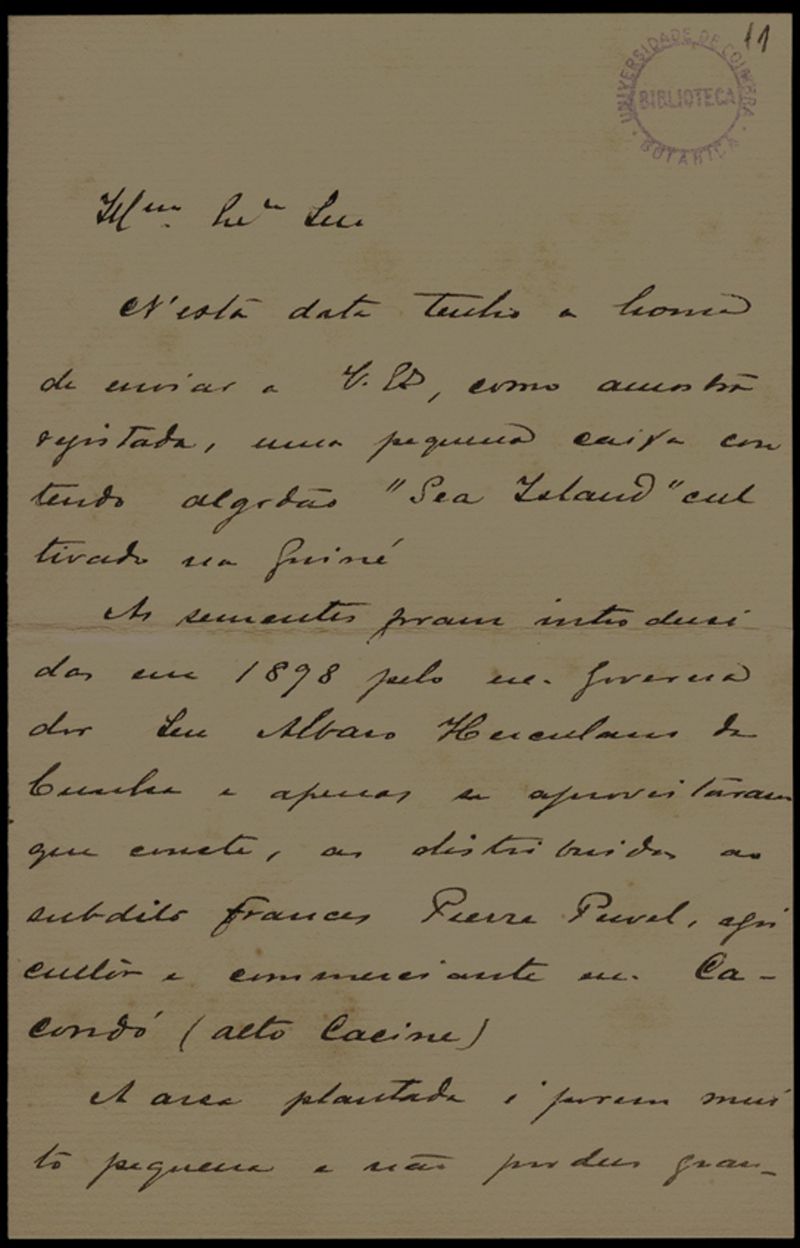 11
UNIVERSIDADE DE COIMBRA
BIBLIOTECA
BOTANICA
Illmo. Exmo Snr
N'esta data tenho a honra
de enviar a V. Ex, como amostra
registada, uma pequena caixa con
tendo algodão "Sea Island" cul
tivado na Guiné
As sementes foram introdusi
das em 1898 pelo ex. Governa
dor Snr Albaro Herculano da
Cunha e apenas se aproveitaram
que conste, as distribuidas ao
subdito frances Pierre Puvel, agri
cultor e commerciante em Ca-
condó (alto Cacine)
A area plantada é porem mui
to pequena e não produs gran-